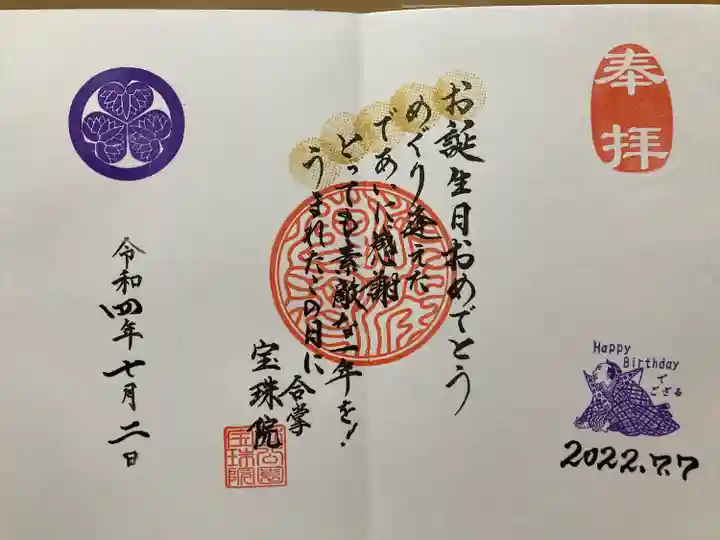 奉拝
お誕生日おめでとう
めぐり逢えた
であいに感謝
とっても素敵な一年を！
うまれたこの日に
合掌
宝珠院
令和四年七月二日
Happy
Birthday
で
ござる
2022.7.7